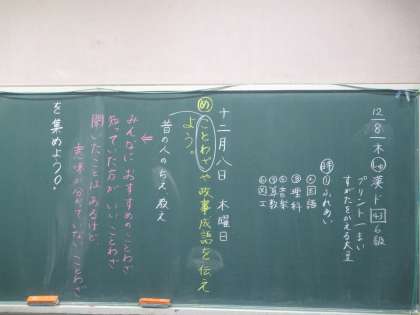 12/8 木 しゅ 漢ド 43 6級
プリント一まい
すがたをかえる大豆
時 ①ふれあい
②国語
③理科
④音楽
⑤算数
⑥図工
十二月八日 木曜日
め ことわざや故事成語を伝え
よう。
昔の人のちえ、教え
みんなにおすすめのことわざ
知っていた方がいいことわざ
聞いたことはあるけど
意味が分かっていないことわざ
を集めよう。